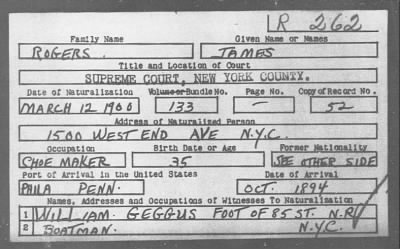 LR 262
Family Name Given Name or Names
ROGERS. JAMES
Title and Location of Court
SUPREME COURT, NEW YORK COUNTY.
Date of Naturalization Volume or Bundle No. Page No. Copy of Record No.
MARCH 12 1900 133 — 52
Address of Naturalized Person
1500 WEST END AVE N.Y.C.
Occupation Birth Date or Age Former Nationality
CHOE MAKER 35 SEE OTHER SIDE
Port of Arrival in the United States Date of Arrival
PHILA PENN. OCT. 1894
Names, Addresses and Occupations of Witnesses To Naturalization
1 WILLIAM. GEGGUS FOOT OF 85 ST. N.R.
2 BOATMAN. N.Y.C.